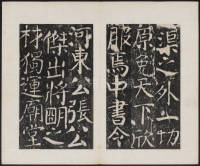 渠之外一切
原免天下欣
服焉中書令
河東公張公
傑出將明之
材獨運廟堂